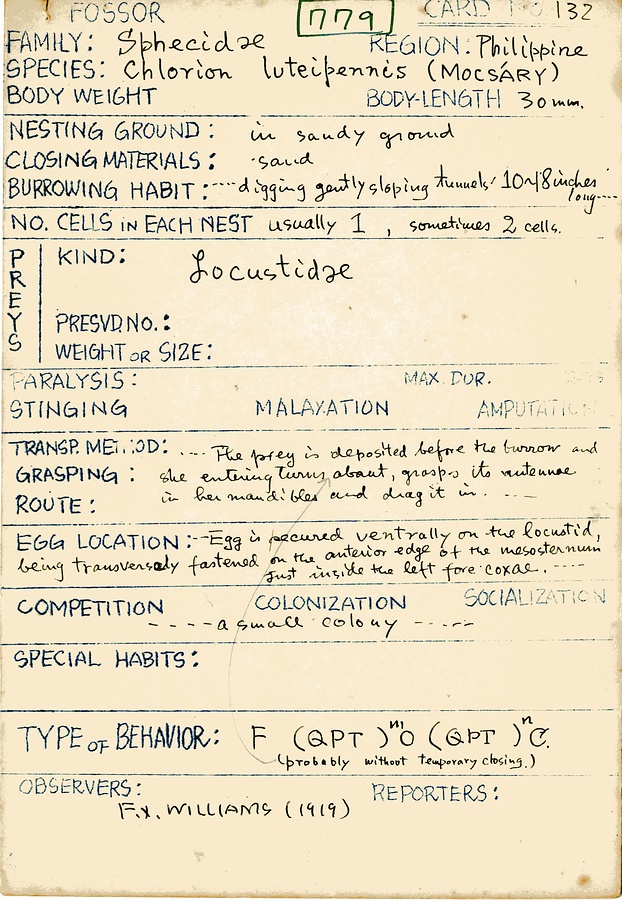 FOSSOR 779 CARD NO 132
FAMILY: Sphecidae REGION: Philippine
SPECIES: Chlorion luteipennis (MOCSÁRY)
BODY WEIGHT BODY-LENGTH 30mm.
NESTING GROUND: in sandy ground
CLOSING MATERIALS: sand
BURROWING HABIT: ---- digging gently sloping tunnels 10~18 inches
long----
NO. CELLS in EACH NEST usually 1, sometimes 2 cells.
PREYS
KIND: Locustidae
PRESVD NO.:
WEIGHT OR SIZE:
PARALYSIS: MAX. DUR.
STINGING MALAXATION AMPUTATION
TRANSP. METHOD: ---- The prey is deposited before the burrow and
GRASPING: she entering turns about, grasps its antennae
ROUTE: in her mandibles and drag it in. ----
EGG LOCATION: -- Egg is secured ventrally on the locustid,
being transversely fastened on the anterior edge of the mesosternum
just inside the left fore coxae. ----
COMPETITION COLONIZATION SOCIALIZATION
---- a small colony ----
SPECIAL HABITS:
TYPE OF BEHAVIOR: F (QPT)ᵐO (QPT)ⁿC.
(probably without temporary closing.)
OBSERVERS: REPORTERS:
F.X. WILLIAMS (1919)